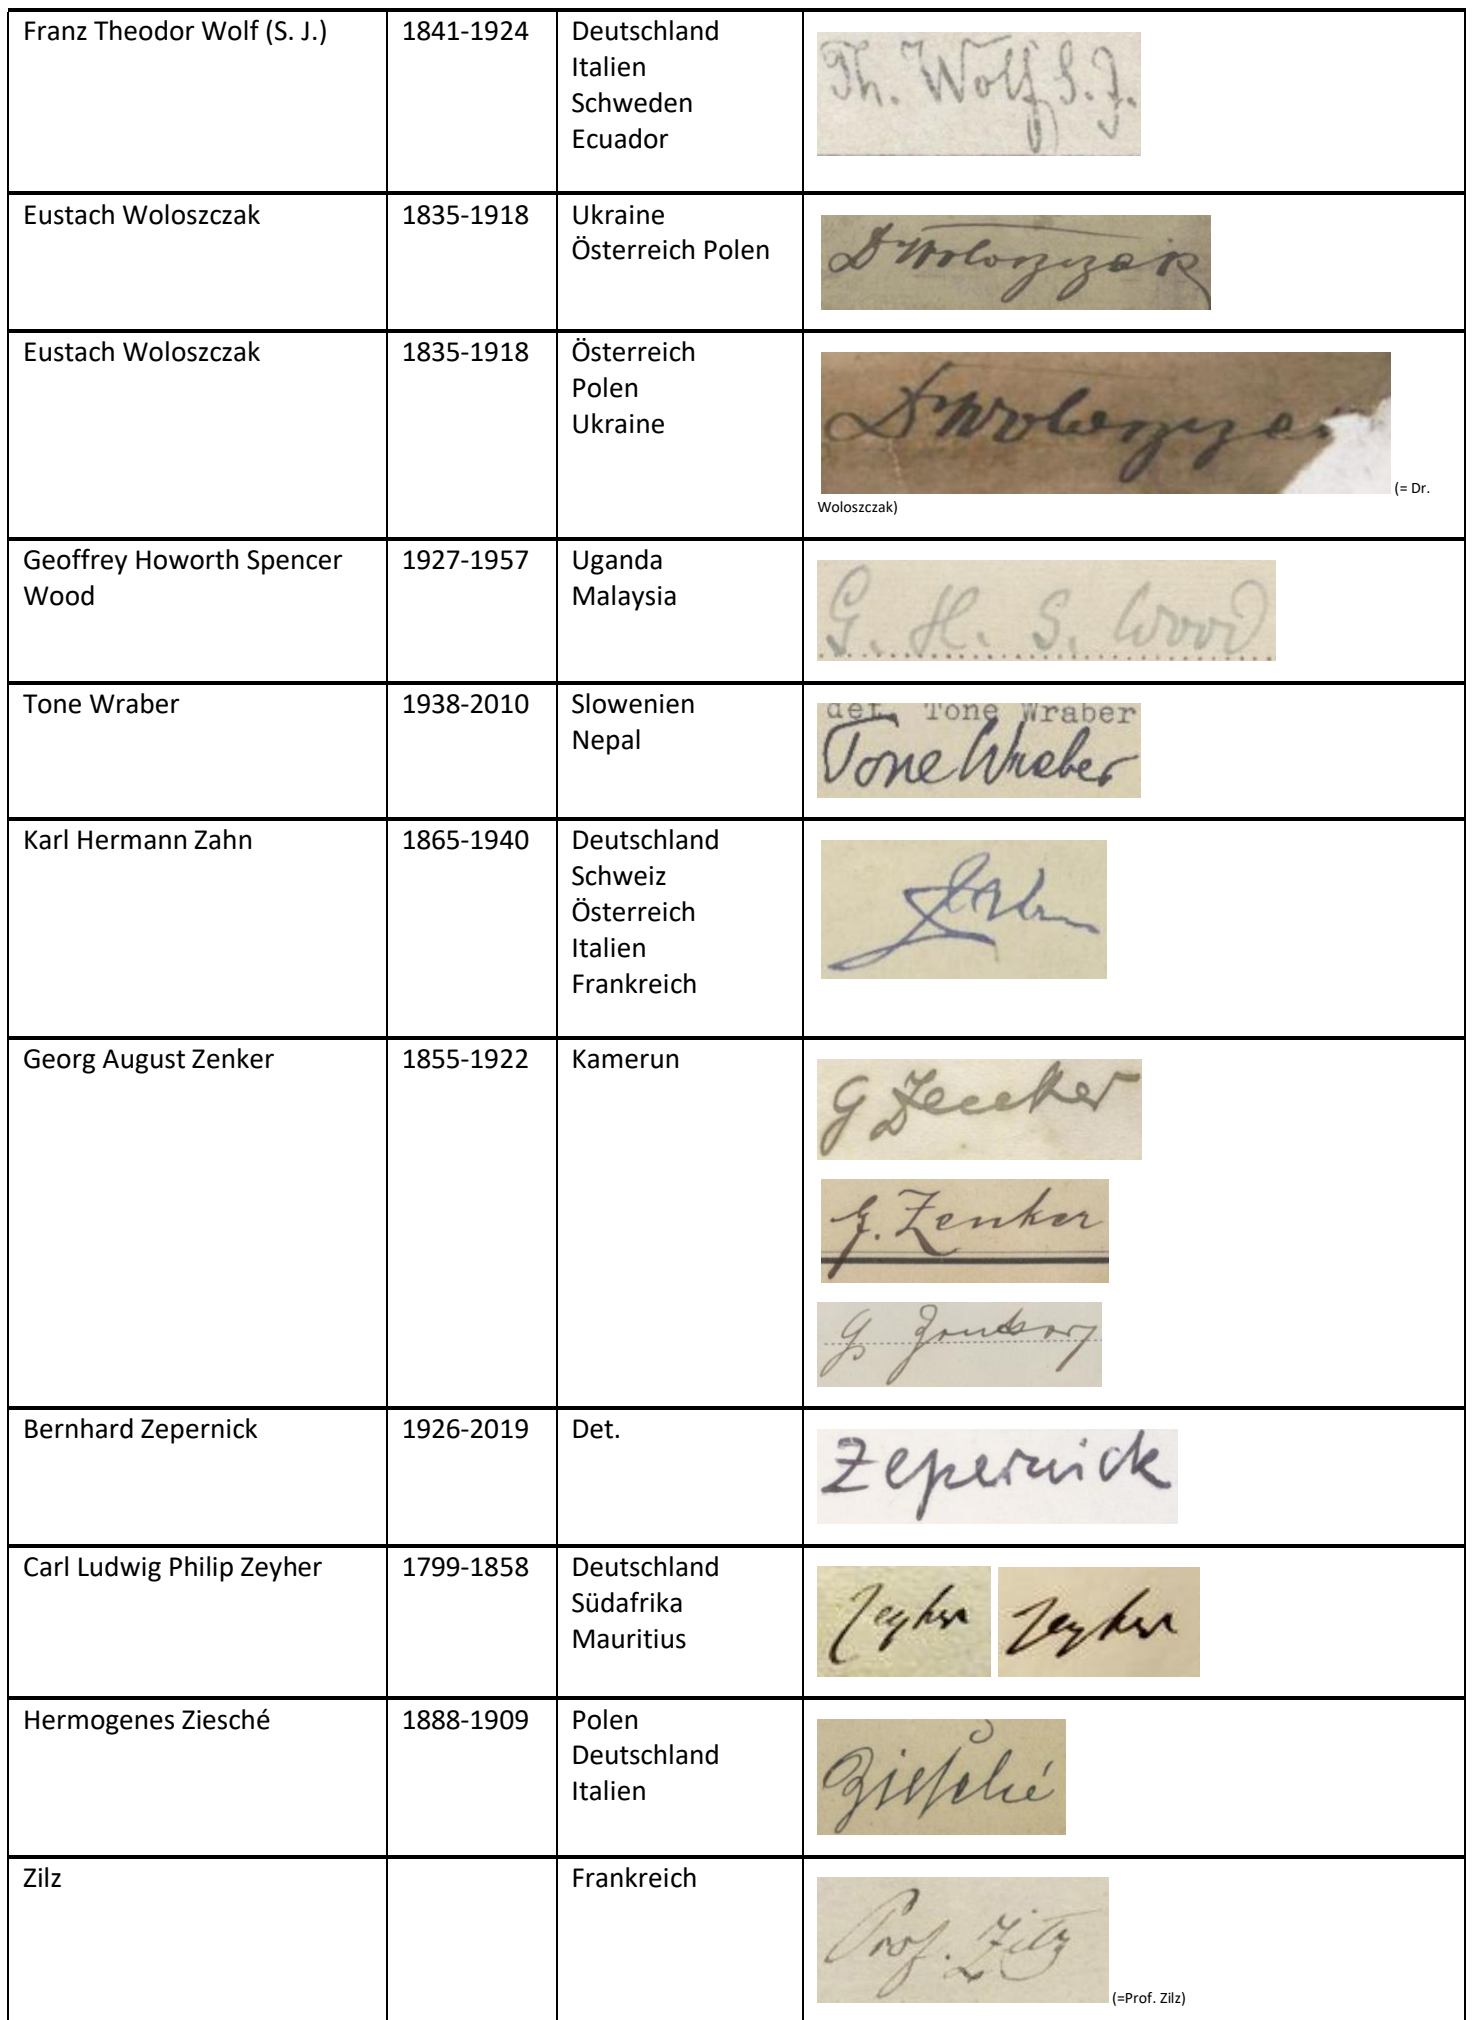 Franz Theodor Wolf (S. J.) 1841-1924 Deutschland
Italien
Schweden
Ecuador
Th. Wolf S. J.
Eustach Woloszczak 1835-1918 Ukraine
Österreich Polen
Dr Woloszczak
Eustach Woloszczak 1835-1918 Österreich
Polen
Ukraine
Dr Woloszcza
(= Dr.
Woloszczak)
Geoffrey Howorth Spencer 1927-1957 Uganda
Wood Malaysia
G. H. S. Wood
Tone Wraber 1938-2010 Slowenien
Nepal
det. Tone Wraber
Tone Wraber
Karl Hermann Zahn 1865-1940 Deutschland
Schweiz
Österreich
Italien
Frankreich
Zahn
Georg August Zenker 1855-1922 Kamerun
G Zenker
G. Zenker
G Zenker
Bernhard Zepernick 1926-2019 Det.
Zepernick
Carl Ludwig Philip Zeyher 1799-1858 Deutschland
Südafrika
Mauritius
Zeyher Zeyher
Hermogenes Ziesché 1888-1909 Polen
Deutschland
Italien
Ziesché
Zilz Frankreich
Prof. Zilz
(=Prof. Zilz)